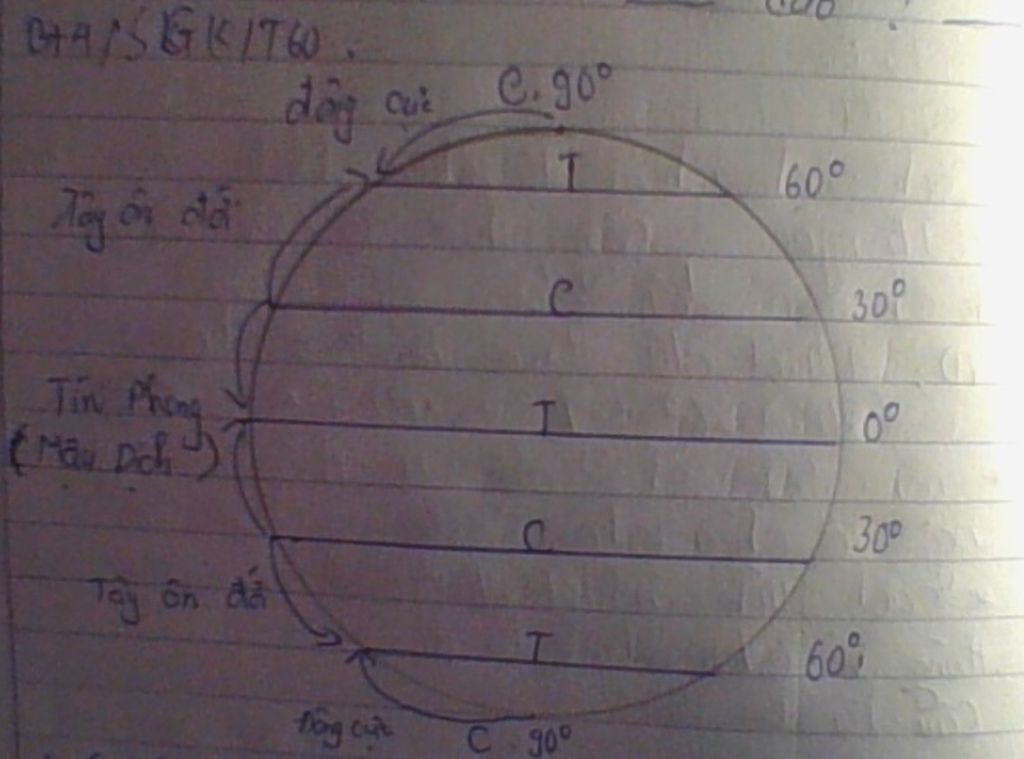 C4/SGK/T60.
đông cực C. 90°
T 60°
Tây ôn đới
C 30°
Tín Phong
T 0°
(Mậu Dịch)
C 30°
Tây ôn đới
T 60°
Đông cực C. 90°